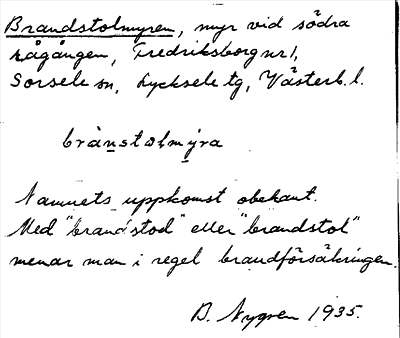 Brandstolmyren, myr vid södra
rågången, Fredriksborg nr 1,
Sorsele sn, Lycksele tg, Västerb. l.
brànstolmy̆ra
Namnets uppkomst obekant.
Med "brandstod" eller "brandstol"
menar man i regel brandförsäkringen.
B. Nygren 1935.